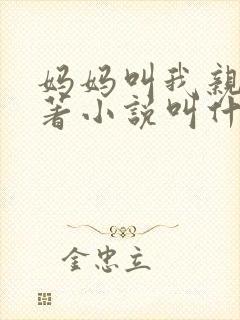 妈妈叫我亲
著小説叫什
金忠立